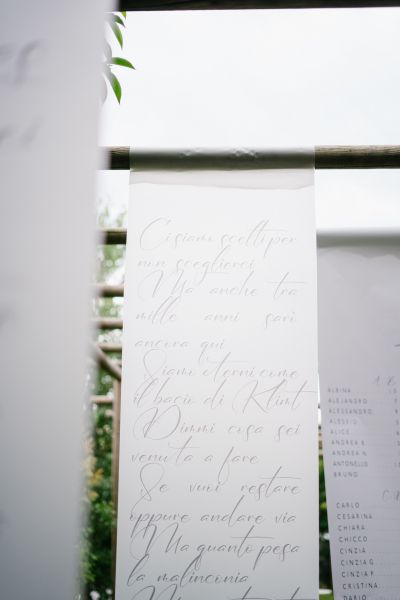 Ci siamo scelti per
non sceglierci
Ma anche tra
mille anni sarò
ancora qui
Siamo eterni come
il bacio di Klimt
Dimmi cosa sei
venuta a fare
Se vuoi restare
oppure andare via
Ma quanto pesa
la malinconia
ALBINA
ALEJANDRO
ALESSANDRO
ALESSIO
ALICE
ANDREA B
ANDREA N
ANTONELLO
BRUNO
CARLO
CESARINA
CHIARA
CHICCO
CINZIA
CINZIA G
CINZIA P
CRISTINA
DARIO